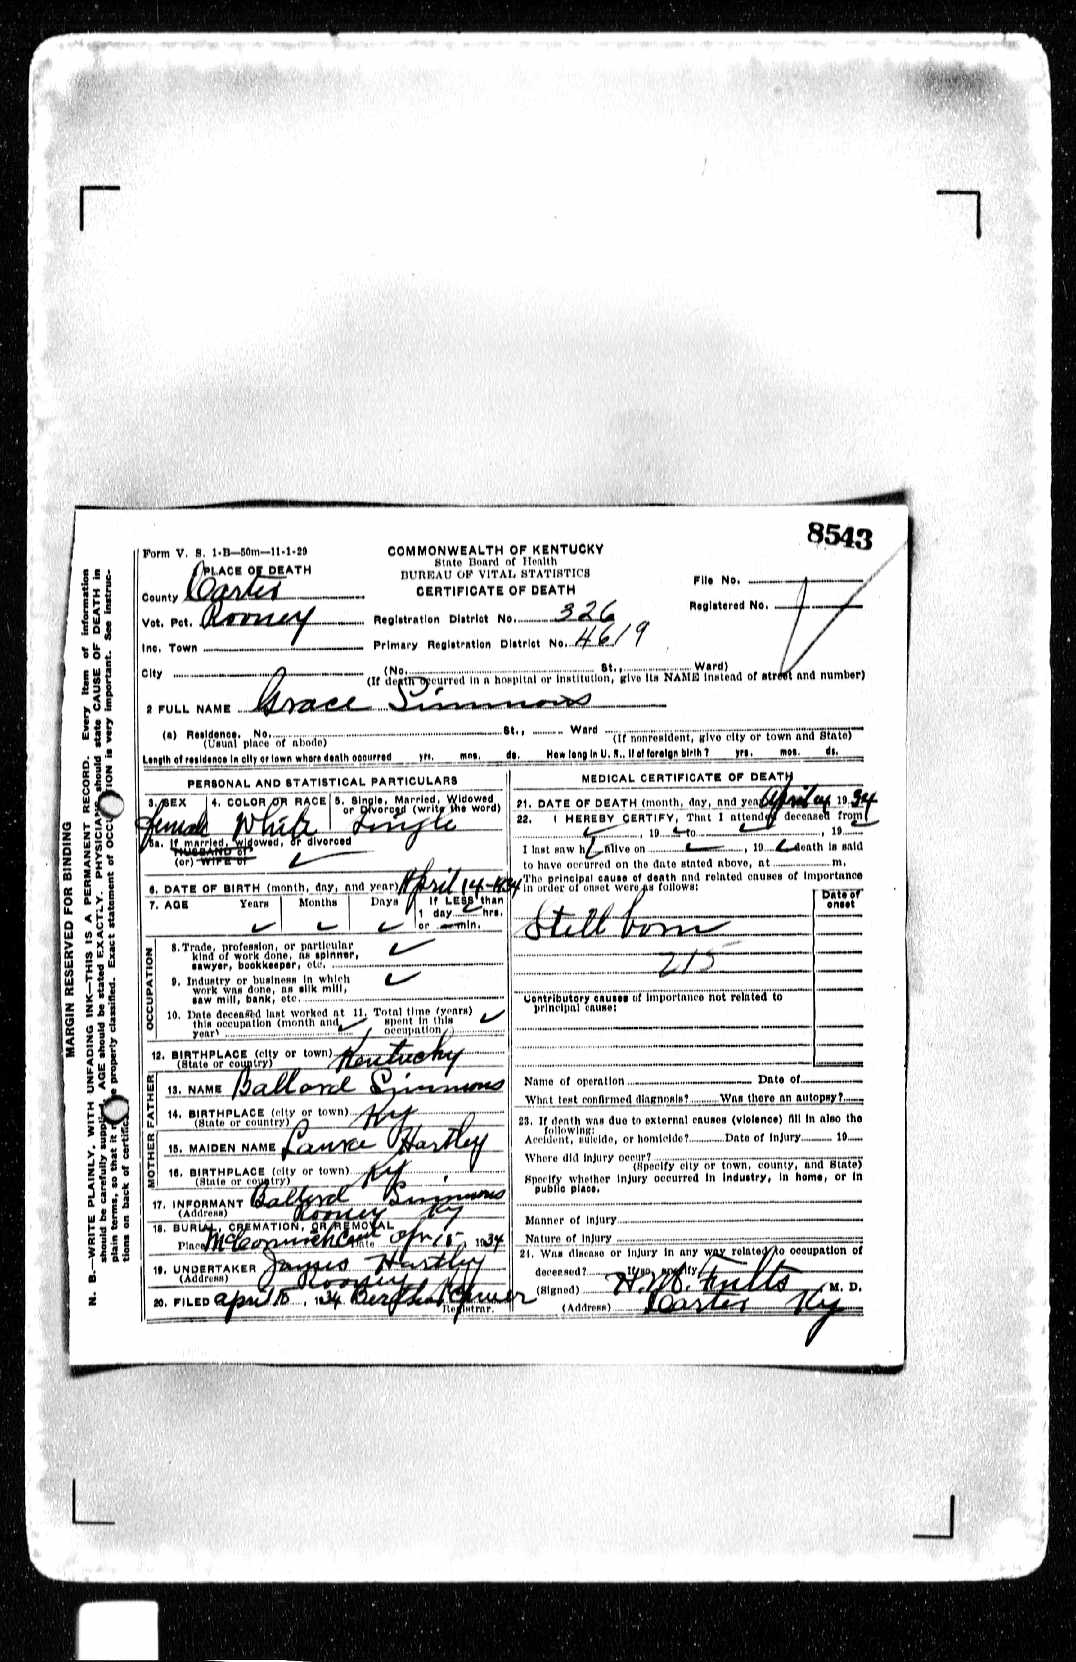 8543
Form V. S. 1-B—50m—11-1-29
COMMONWEALTH OF KENTUCKY
State Board of Health
BUREAU OF VITAL STATISTICS
CERTIFICATE OF DEATH
PLACE OF DEATH
County Carter
Vot. Pct. Rooney
Inc. Town
City
File No.
Registered No.
Registration District No. 326
Primary Registration District No. 4619
(No. St., Ward)
(If death occurred in a hospital or institution, give its NAME instead of street and number)
2 FULL NAME Grace Simmons
(a) Residence. No. St., Ward
(Usual place of abode) (If nonresident, give city or town and State)
Length of residence in city or town where death occurred yrs. mos. ds. How long in U. S., if of foreign birth? yrs. mos. ds.
PERSONAL AND STATISTICAL PARTICULARS
3. SEX 4. COLOR OR RACE 5. Single, Married, Widowed
or Divorced (write the word)
Female White Single
5a. If married, widowed, or divorced
HUSBAND of
(or) WIFE of
6. DATE OF BIRTH (month, day, and year) April 14-1934
7. AGE Years Months Days If LESS than
1 day hrs.
or min.
OCCUPATION
8. Trade, profession, or particular
kind of work done, as spinner,
sawyer, bookkeeper, etc.
9. Industry or business in which
work was done, as silk mill,
saw mill, bank, etc.
10. Date deceased last worked at 11. Total time (years)
this occupation (month and spent in this
year) occupation
12. BIRTHPLACE (city or town) Kentucky
(State or country)
FATHER
13. NAME Ballard Simmons
14. BIRTHPLACE (city or town) Ky
(State or country)
MOTHER
15. MAIDEN NAME Hartley
16. BIRTHPLACE (city or town) Ky
(State or country)
17. INFORMANT Ballard Simmons
(Address) Rooney Ky
18. BURIAL, CREMATION, OR REMOVAL
Place Date Apr 15, 1934
19. UNDERTAKER James Hartley
(Address) Rooney
20. FILED April 15, 1934 Bertha
Registrar.
MEDICAL CERTIFICATE OF DEATH
21. DATE OF DEATH (month, day, and year) April 1934
22. I HEREBY CERTIFY, That I attended deceased from
, 19 to , 19
I last saw h alive on , 19 death is said
to have occurred on the date stated above, at m.
The principal cause of death and related causes of importance
in order of onset were as follows:
Date of
onset
Still born
215
Contributory causes of importance not related to
principal cause:
Name of operation Date of
What test confirmed diagnosis? Was there an autopsy?
23. If death was due to external causes (violence) fill in also the
following:
Accident, suicide, or homicide? Date of injury 19
Where did injury occur?
(Specify city or town, county, and State)
Specify whether injury occurred in industry, in home, or in
public place.
Manner of injury
Nature of injury
24. Was disease or injury in any way related to occupation of
deceased? If so, specify
(Signed) H. M. Fults, M. D.
(Address) Carter Ky
MARGIN RESERVED FOR BINDING
N. B.—WRITE PLAINLY, WITH UNFADING INK—THIS IS A PERMANENT RECORD. Every item of information
should be carefully supplied. AGE should be stated EXACTLY. PHYSICIANS should state CAUSE OF DEATH in
plain terms, so that it may be properly classified. Exact statement of OCCUPATION is very important. See instruc-
tions on back of certificate.